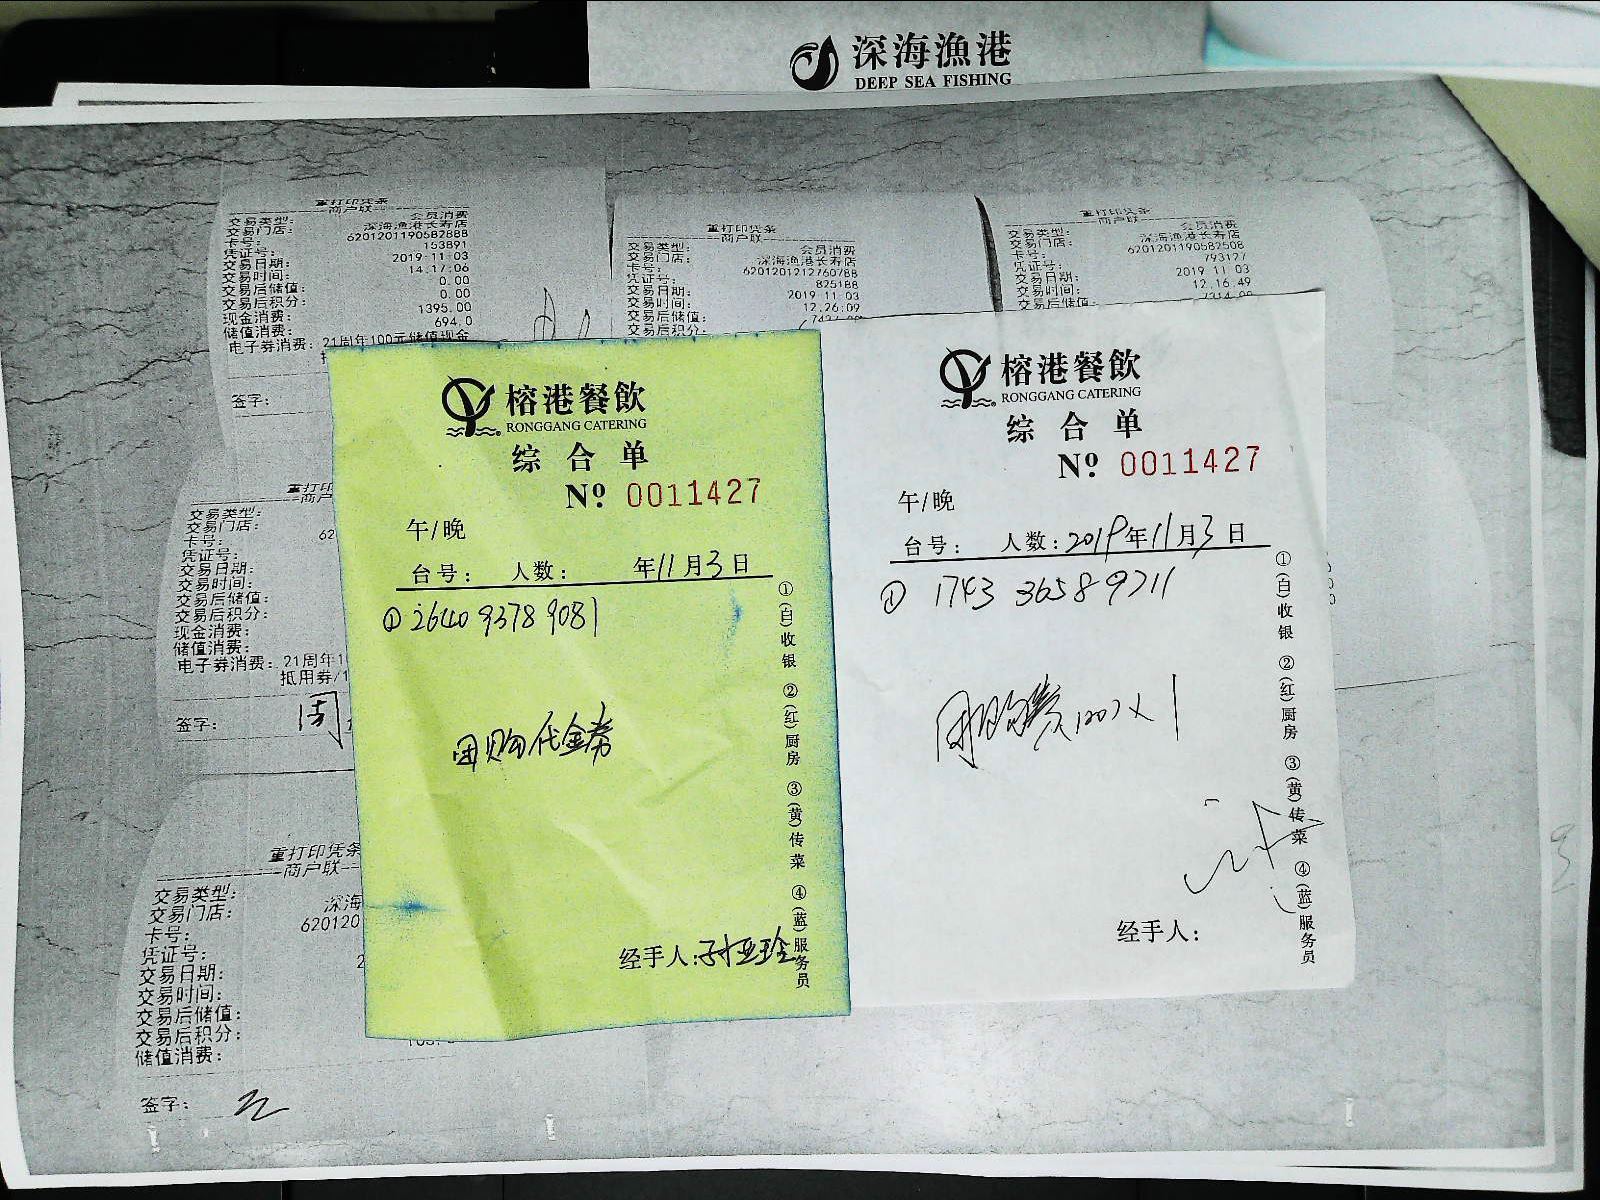 深海漁港
DEEP SEA FISHING
重打印凭条
商户联
交易类型: 会员消费
交易门店: 深海渔港长寿店
卡号: 6201201190582888
凭证号: 153891
交易日期: 2019-11-03
交易时间: 14.17.06
交易后储值: 0.00
交易后积分: 0.00
现金消费: 1395.00
储值消费: 694.0
电子券消费: 21周年100元储值现金
签字:
重打印凭条
商户联
交易类型: 会员消费
交易门店: 深海渔港长寿店
卡号: 6201201212760788
凭证号: 825188
交易日期: 2019 11 03
交易时间: 12.26.09
交易后储值:
交易后积分:
重打印凭条
商户联
交易类型: 会员消费
交易门店: 深海渔港长寿店
卡号: 6201201190582508
凭证号: 793127
交易日期: 2019 11 03
交易时间: 12.16.49
交易后储值: 7314.00
重打印
商户
交易类型:
交易门店:
卡号: 62
凭证号:
交易日期:
交易时间:
交易后储值:
交易后积分:
现金消费:
储值消费:
电子券消费: 21周年1
抵用券/1
签字: 周
重打印凭条
商户联
交易类型:
交易门店: 深海
卡号: 620120
凭证号:
交易日期: 2
交易时间:
交易后储值:
交易后积分:
储值消费:
签字:
榕港餐飲
RONGGANG CATERING
综合单
Nº 0011427
午/晚
台号: 人数: 年11月3日
① 2640 9378 9081
团购代金券
经手人:
①(白)收银 ②(红)厨房 ③(黄)传菜 ④(蓝)服务员
榕港餐飲
RONGGANG CATERING
综合单
Nº 0011427
午/晚
台号: 人数: 2019年11月3日
① 1743 3658 9711
经手人:
①(白)收银 ②(红)厨房 ③(黄)传菜 ④(蓝)服务员